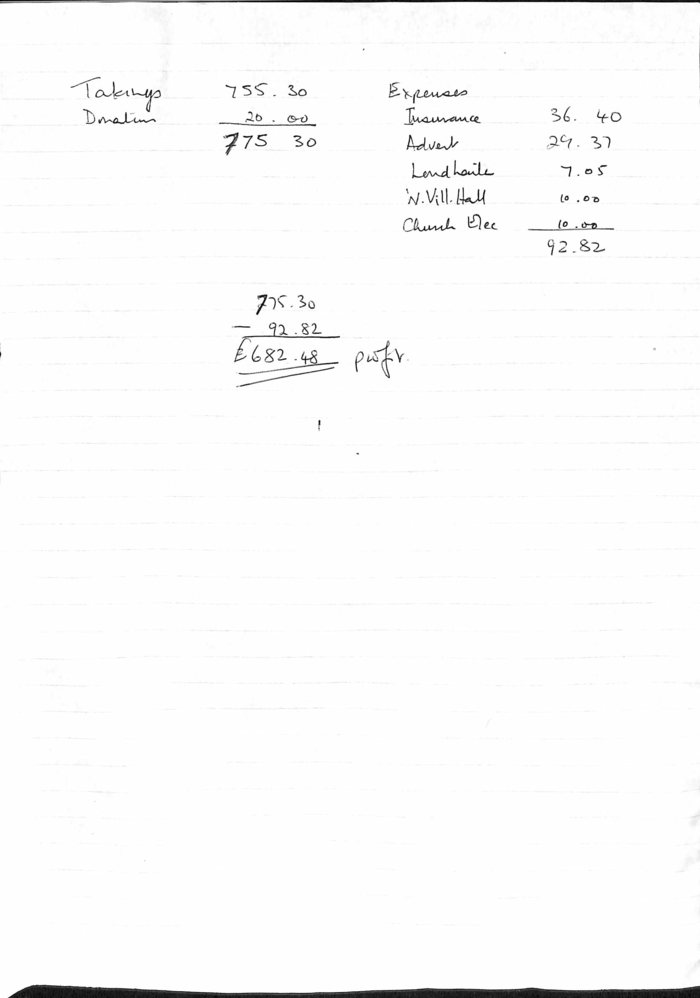 Takings 755.30
Donation 20.00
775 30
Expenses
Insurance 36.40
Advert 29.37
7.05
N.Vill.Hall 10.00
Church Elec 10.00
92.82
775.30
- 92.82
£682.48 profit